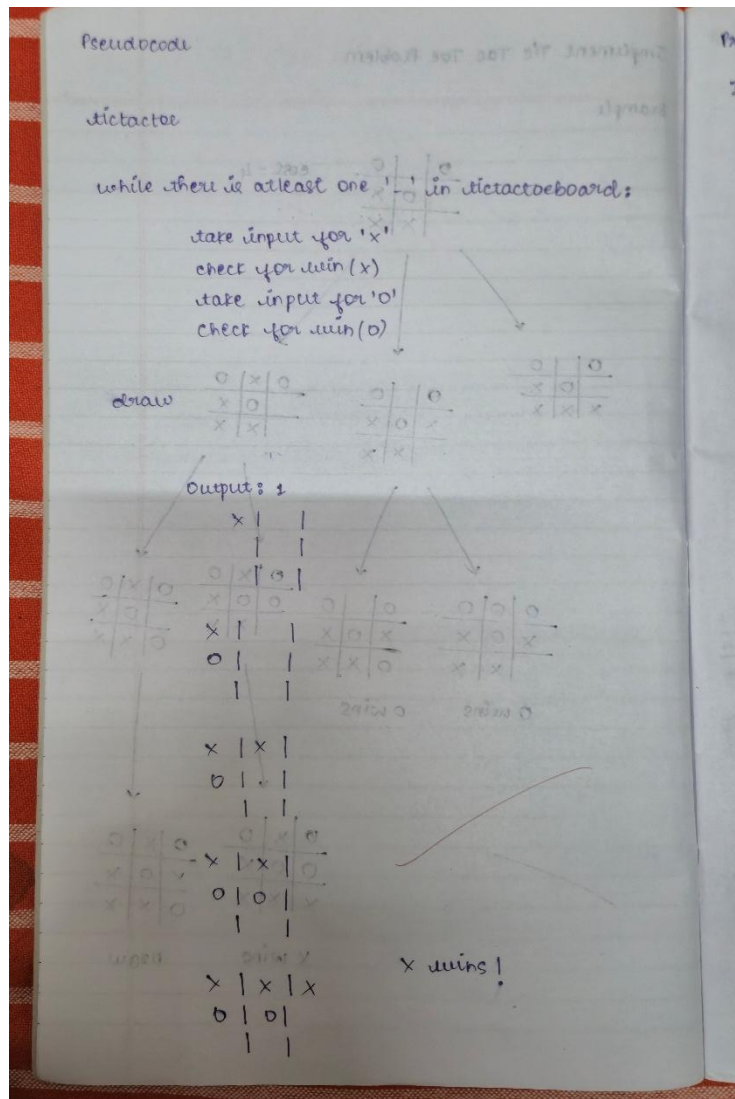 Pseudocode
tictactoe
while there is atleast one '_' in tictactoeboard:
take input for 'x'
check for win(x)
take input for 'o'
check for win(o)
draw
Output: 1
x | |
| |
| |
x | |
o | |
| |
x | x |
o | |
| |
x | x |
o | o |
| |
x | x | x
o | o |
| |
x wins!